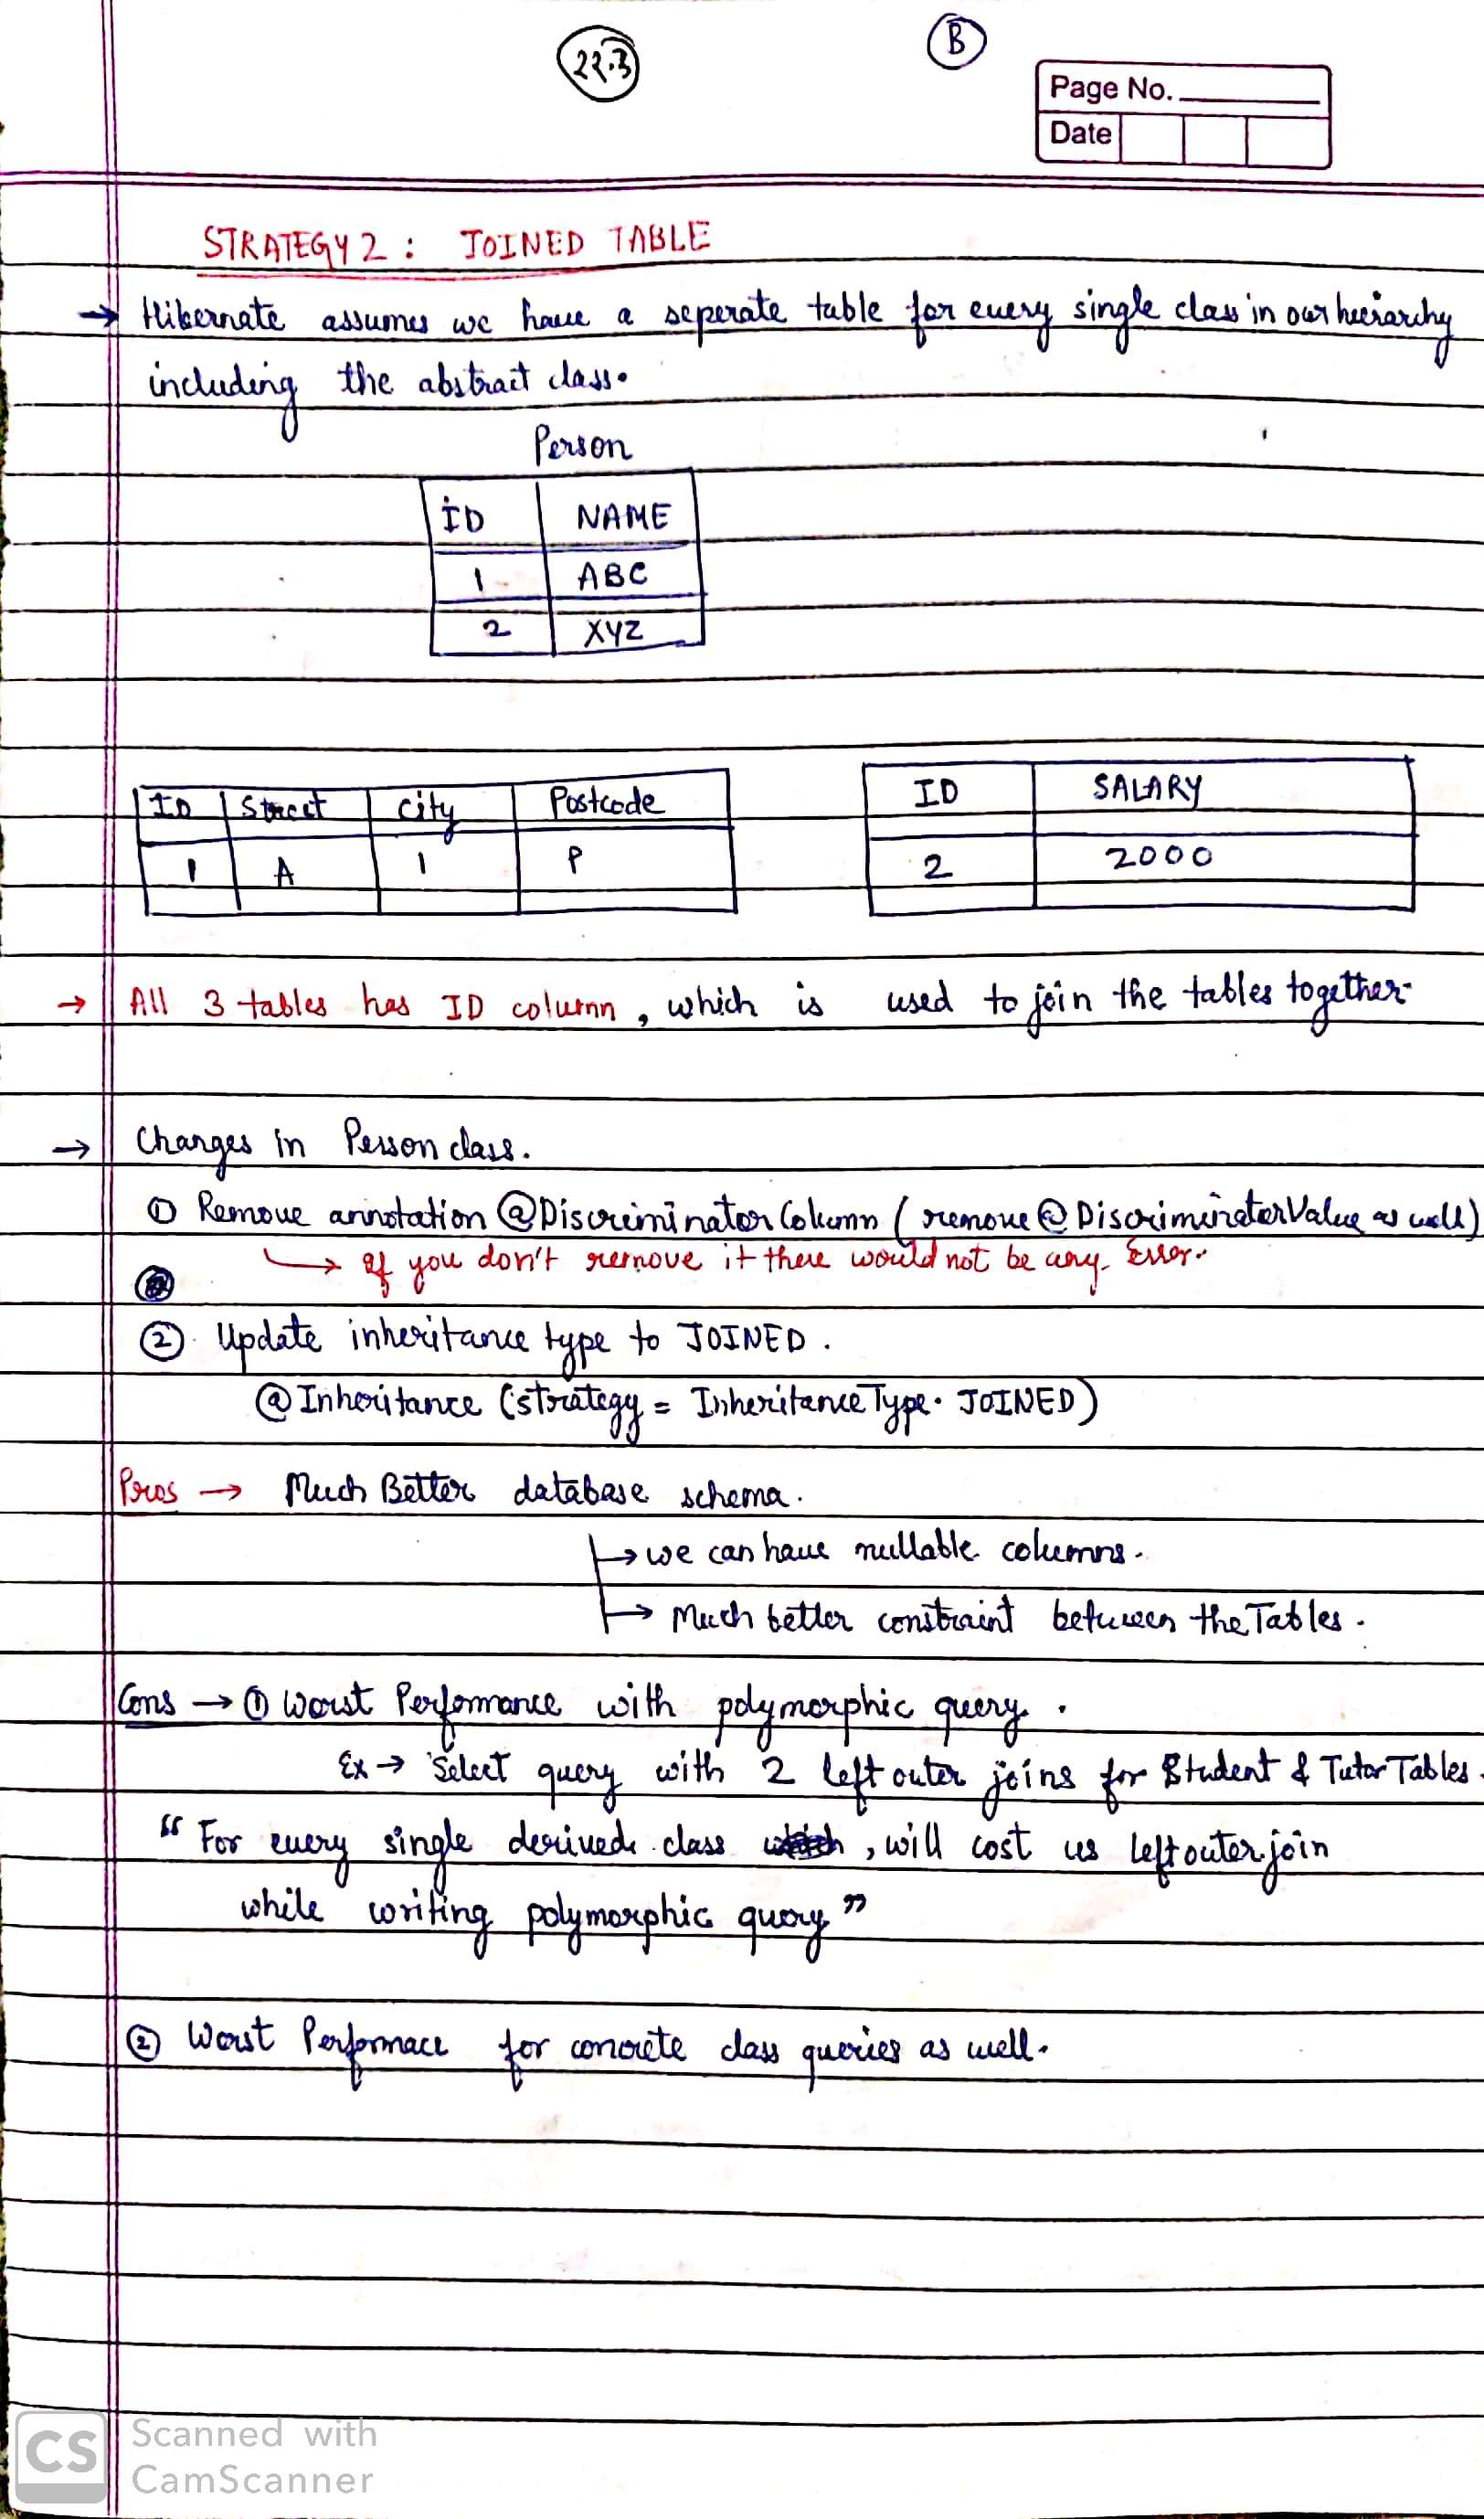 22.3
B
Page No.
Date
STRATEGY 2 : JOINED TABLE
→ Hibernate assumes we have a seperate table for every single class in our heirarchy
including the abstract class.
Person
ID NAME
1 ABC
2 XYZ
ID Street City Postcode
1 A 1 P
ID SALARY
2 2000
→ All 3 tables has ID column, which is used to join the tables together
→ Changes in Person class.
① Remove annotation @DiscriminatorColumn (remove @DiscriminatorValue as well)
↳ If you don't remove it there would not be any Error.
② Update inheritance type to JOINED.
@Inheritance (strategy = InheritanceType.JOINED)
Pros → Much Better database schema.
↳ we can have nullable columns.
↳ Much better constraint between the Tables.
Cons → ① Worst Performance with polymorphic query.
Ex → Select query with 2 left outer joins for Student & Tutor Tables.
“ For every single derived class , will cost us left outer join
while writing polymorphic query ”
② Worst Performace for concrete class queries as well.
CS Scanned with
CamScanner